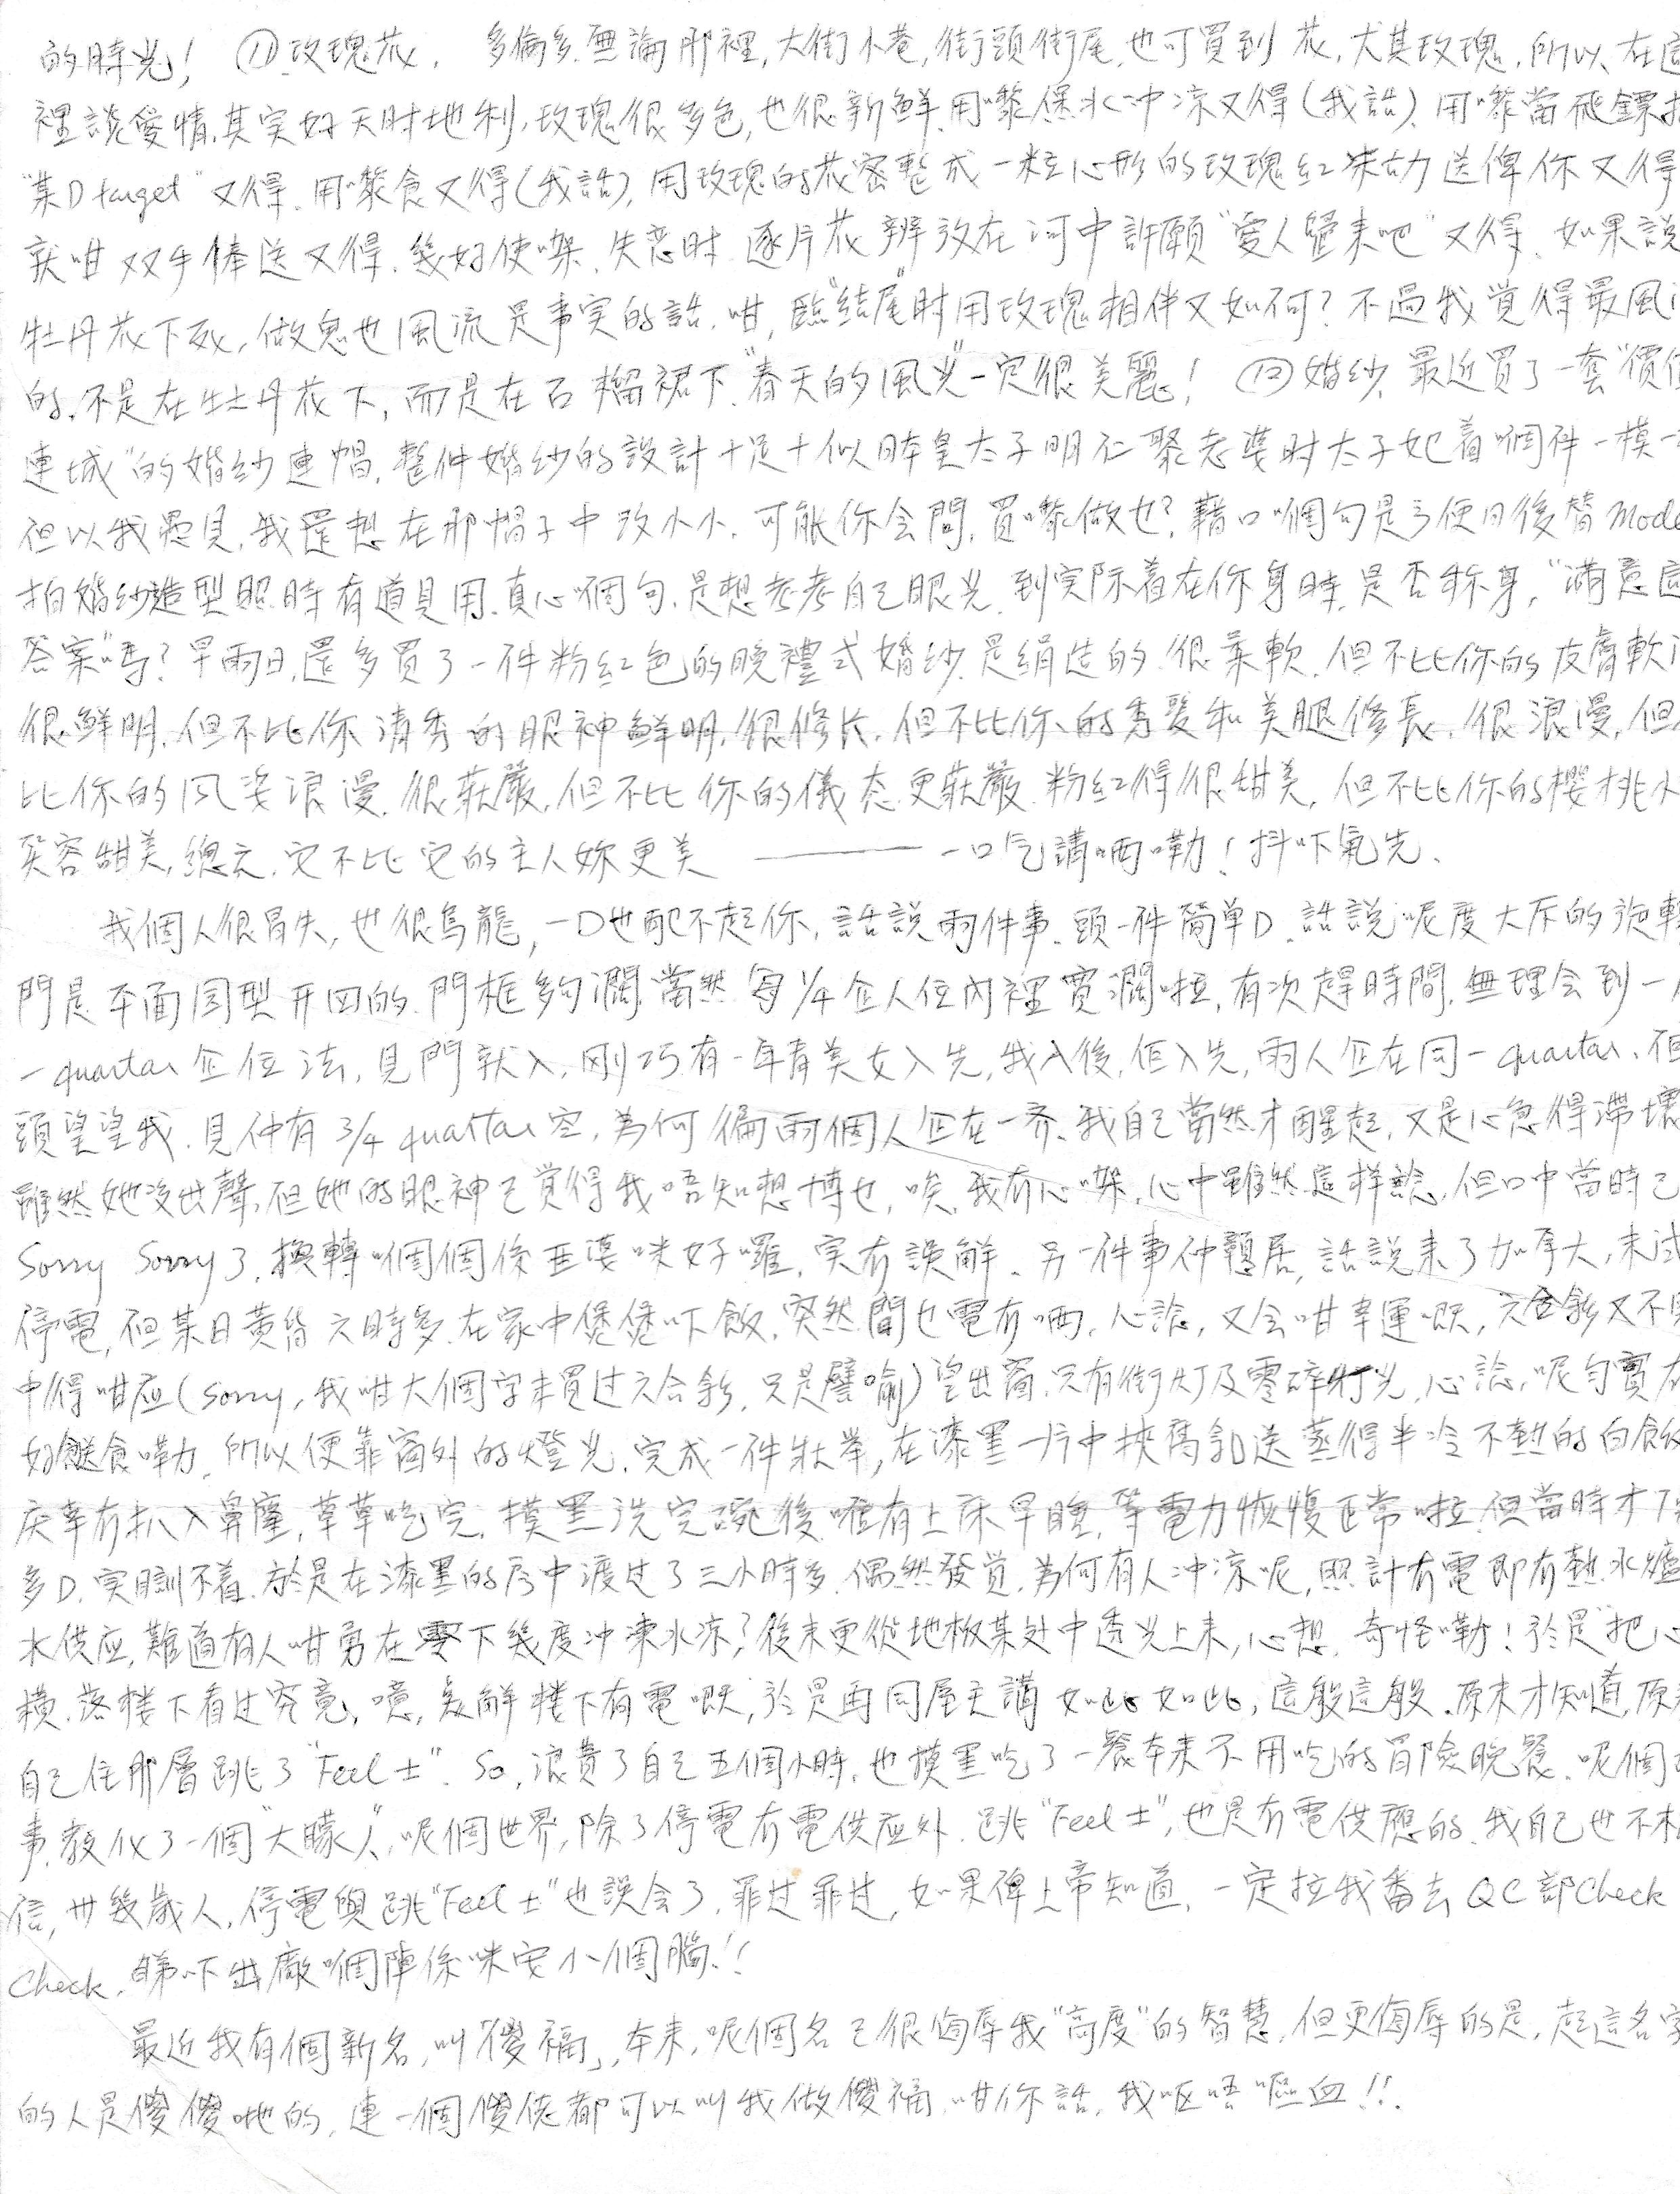 的時光! ⑪玫瑰花. 多倫多無論那裡,大街小巷,街頭街尾,也可買到花,尤其玫瑰.所以,在這
裡談愛情,其実好天时地利,玫瑰很多色,也很新鮮.用嚟煲水冲涼又得(我話).用嚟當飛鏢
"某D target"又得.用嚟食又得(我話),用玫瑰的花密整成一粒心形的玫瑰红朱古力送俾你又得
就咁双手捧送又得.幾好使㗎.失恋时逐片花辦放在河中許願"愛人歸來吧"又得.如果說
牡丹花下死,做鬼也風流是事実的話.咁,臨"結尾"时用玫瑰相伴又如何?不過我覚得最風
的.不是在牡丹花下,而是在石榴裙下."春天的風光"一定很美麗! ⑫婚纱.最近買了一套"價值
連城"的婚纱連帽.整件婚纱的設計十足十似日本皇太子明仁娶老婆时太子妃着嗰件一模一
但以我愚見,我還想在那帽子中改小小.可能你会問,買嚟做乜?藉口嗰句是方便日後替Mode
拍婚纱造型照時有道具用.真心嗰句.是想考考自己眼光.到実际着在你身時,是否称身,"满意
答案"嗎?早兩日,還多買了一件粉红色的晚禮式婚纱.是絹造的.很柔軟.但不比你的皮膚軟
很鮮明.但不比你清秀的眼神鮮明.很修长.但不比你的秀髮和美腿修長.很浪漫,但
比你的风姿浪漫.很莊嚴,但不比你的儀态更莊嚴.粉红得很甜美,但不比你的櫻桃小
笑容甜美,總之.它不比它的主人妳更美 ——— 一口气講晒嘞!抖吓氣先.
我個人很冒失,也很烏龍,一D也配不起你.話說兩件事.頭一件簡单D.話說呢度大厈的旋轉
門是平面圆型开四的.門框夠濶.當然每1/4企人位内裡實濶啦.有次趕時間.無理会到一人
一quartar企位法,見門就入.刚巧有一年青美女入先,我入後,佢入先,兩人企在同一quartar.佢
頭望望我.見仲有3/4 quartar空,為何偏兩個人企在一齐.我自己當然才醒起,又是心急得滯壞
雖然她沒出聲,但她的眼神已覚得我唔知想博乜,唉,我冇心㗎.心中雖然這样諗.但口中當時已
Sorry Sorry了.換轉嗰個係亜婆咪好囉.実冇誤解.另一件事仲愚居,話說來了加拿大,未試
停電,但某日黄昏六時多.在家中煲煲吓飯.突然間乜電冇晒.心諗,又会咁幸運嘅,六合彩又不見
中得咁应(Sorry,我咁大個字未買过六合彩.只是譬喻)望出窗.只有街灯及零碎灯光,心諗,呢勻實冇
好餸食嘞.所以便靠窗外的燈光.完成一件壯举,在漆黑一片中挾腐乳送蒸得半冷不熱的白飯
庆幸冇扒入鼻窿,草草吃完.摸黑洗完碗後.唯有上床早睡,等電力恢復正常啦.但當時才7
多D.実瞓不着.於是在漆黑的房中渡过了三小時多.偶然發覚.為何有人冲涼呢,照計冇電即冇熱水爐
水供应,難道有人咁勇在零下幾度冲凍水凉?後來更從地板某处中透光上来,心想.奇怪嘞!於是"把心
橫.落樓下看过究竟,噫,為解樓下有電嘅,於是再同屋主講如此如此,這般這般.原來才知道,原來
自己住那層跳了"Feel士".So,浪費了自己五個小時.也摸黑吃了一餐本來不用吃的冒險晚餐.呢個
事.教化了一個"大朦人",呢個世界,除了停電冇電供应外.跳"Feel士",也是冇電供應的.我自己也不相
信,卅幾歲人,停電與跳"Feel士"也誤会了.罪过罪过,如果俾上帝知道.一定拉我番去QC部Check
Check.睇吓出廠嗰陣係咪安小個腦!!
最近我有個新名,叫"傻福",本来,呢個名已很侮辱我"高度"的智慧.但更侮辱的是,起這名字
的人是傻傻哋的,連一個傻佬都可以叫我做傻福.咁你話,我嘔唔嘔血!!